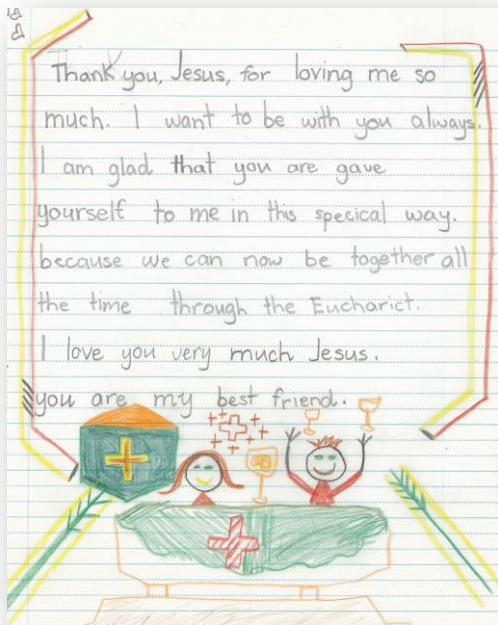 Thank you, Jesus, for loving me so
much. I want to be with you always.
I am glad that you are gave
yourself to me in this specical way.
because we can now be together all
the time through the Eucharict.
I love you very much Jesus.
you are my best friend.